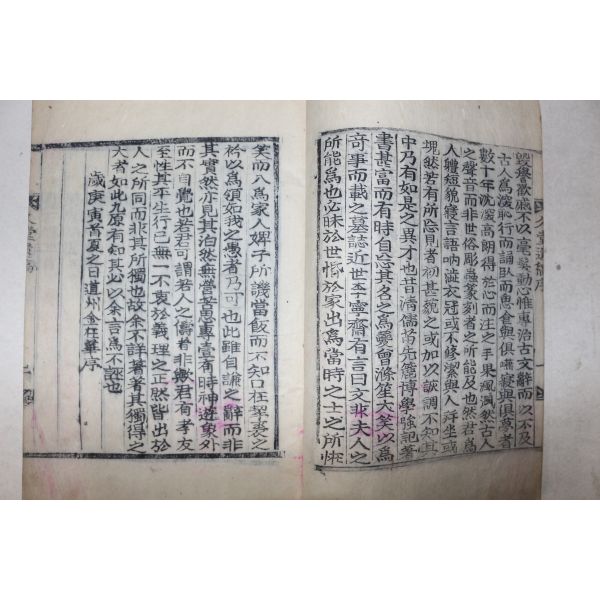 毀譽歡慼不以毫髮動心惟専治古文辭而以不及
古人爲深恥行而誦臥而思食與俱嚥寢與俱夢者
數十年沈深高朗得於心而注之手果渢渢然古人
之聲音而非世俗彫蟲篆刻者之所能及也然君爲
人軆短貌寢言語吶澁衣冠或不修潔與人幷坐或
塊然若有所忘見者初甚貌之或加以詼調不知其
中乃有如是之異才也昔淸儒苗先簏博學強記著
書甚富而有時自忘其名之爲夔會滌笙大笑以爲
奇事而載之墓誌近世李寧齋有言曰文非夫人之
所能爲也必昧於世惛於家出爲當時之士之所恠
笑而入爲家人婢子所譏當飯而不知口在挈裘之
衿以爲領如我之愚者乃可也此雖自謙之辭而非
其實然亦見其泊然無營苦思專壹有時神遊象外
而不自覺也若君可謂若人之儔者非歟君有孝友
至性其行己無一不衷於義理之正然皆出於
人之所同而非其所獨也故余不詳著著其獨得之
大者如此九原有知其必以余言爲不誣也
歲庚寅首夏之日道州金在華序